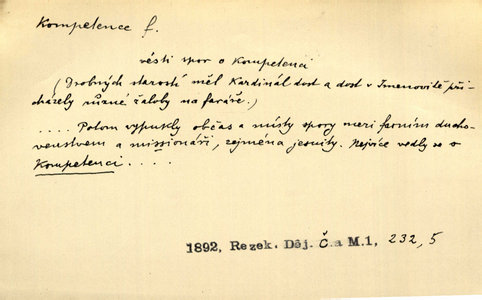 Kompetence f.
vésti spor o kompetenci
(Drobných starostí měl kardinál dost a dost v Jmenovitě při-
cházely různé žaloby na faráře.)
.... Potom vypukly občas a místy spory mezi farním ducho-
venstvem a missionáři, zejména jesuity. Nejvíce vedly se o
kompetenci. . . .
1892, Rezek. Děj. Č. a M. 1, 232, 5